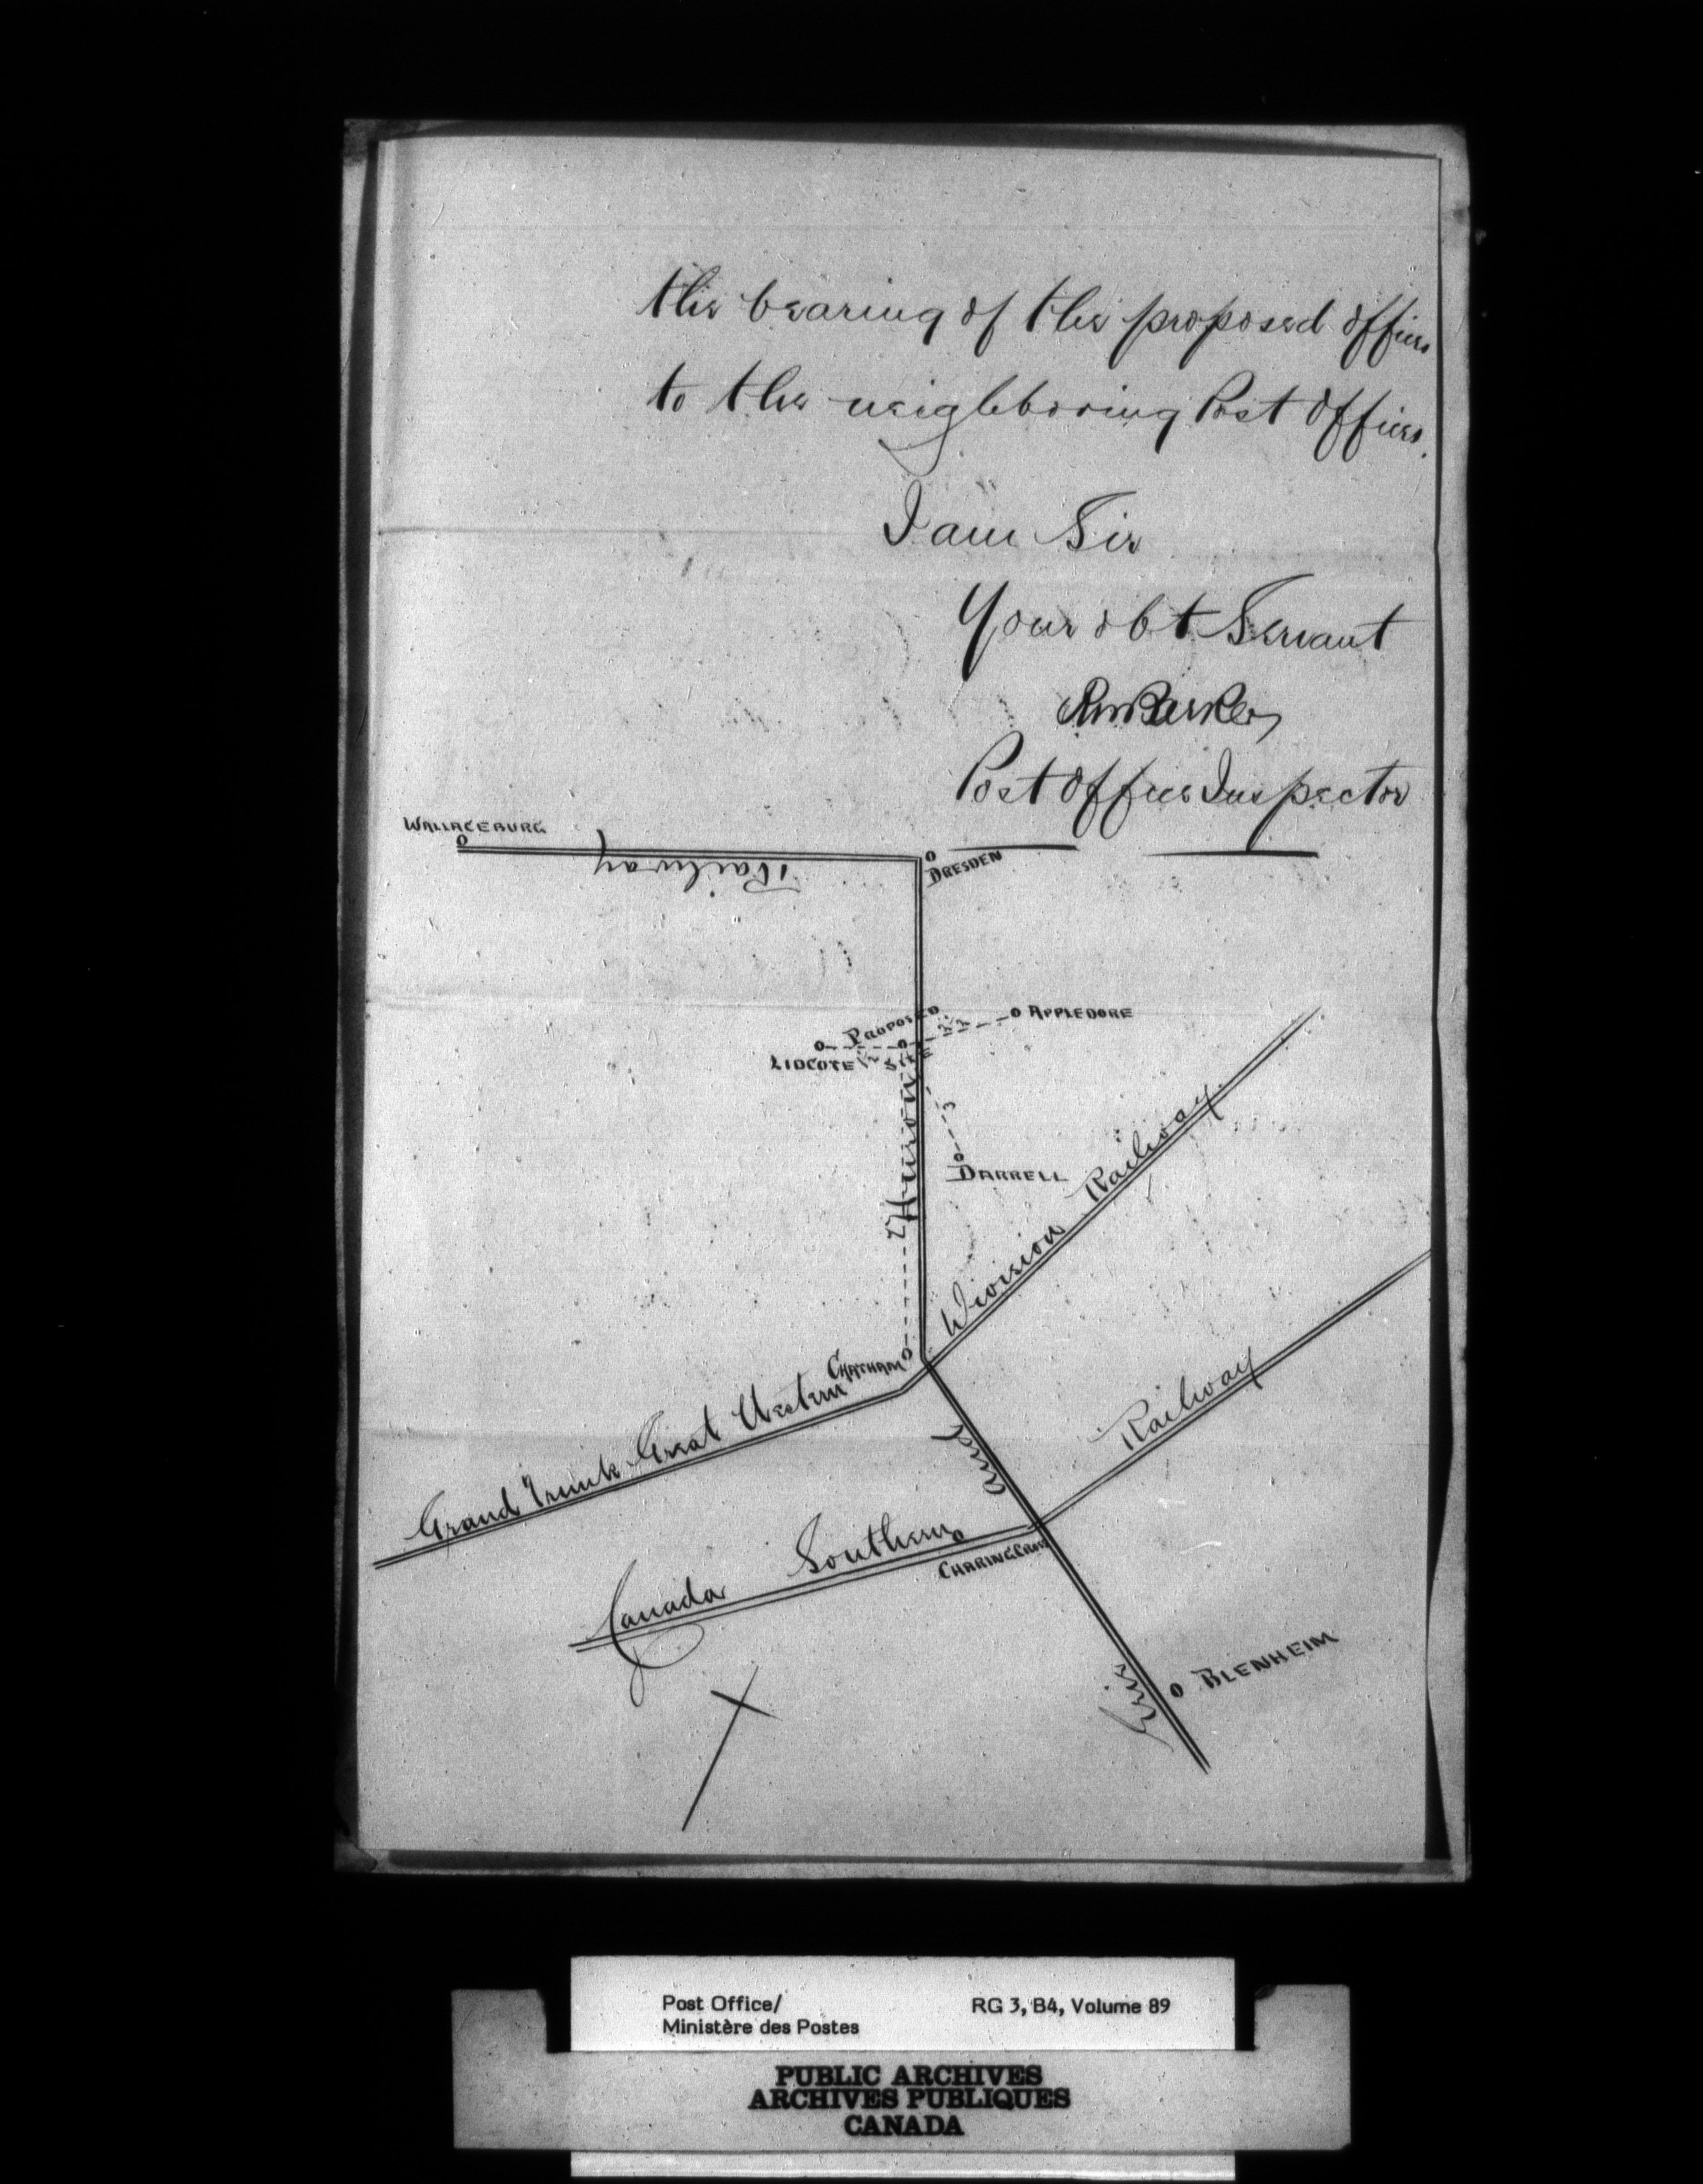 the bearing of the proposed office
to the neighboring Post Offices.
I am Sir
Your obt Servant
RW Barker
Post Office Inspector
WALLACEBURG
DRESDEN
Railway
PROPOSED
SITE
APPLEDORE
LIDCOTE
1/2
2 1/2
Huron
3
DARRELL
Grand Trunk Great Western Division Railway
CHATHAM
and
Canada Southern Railway
CHARING CROSS
Erie
BLENHEIM
Post Office/
Ministère des Postes
RG 3, B4, Volume 89
PUBLIC ARCHIVES
ARCHIVES PUBLIQUES
CANADA